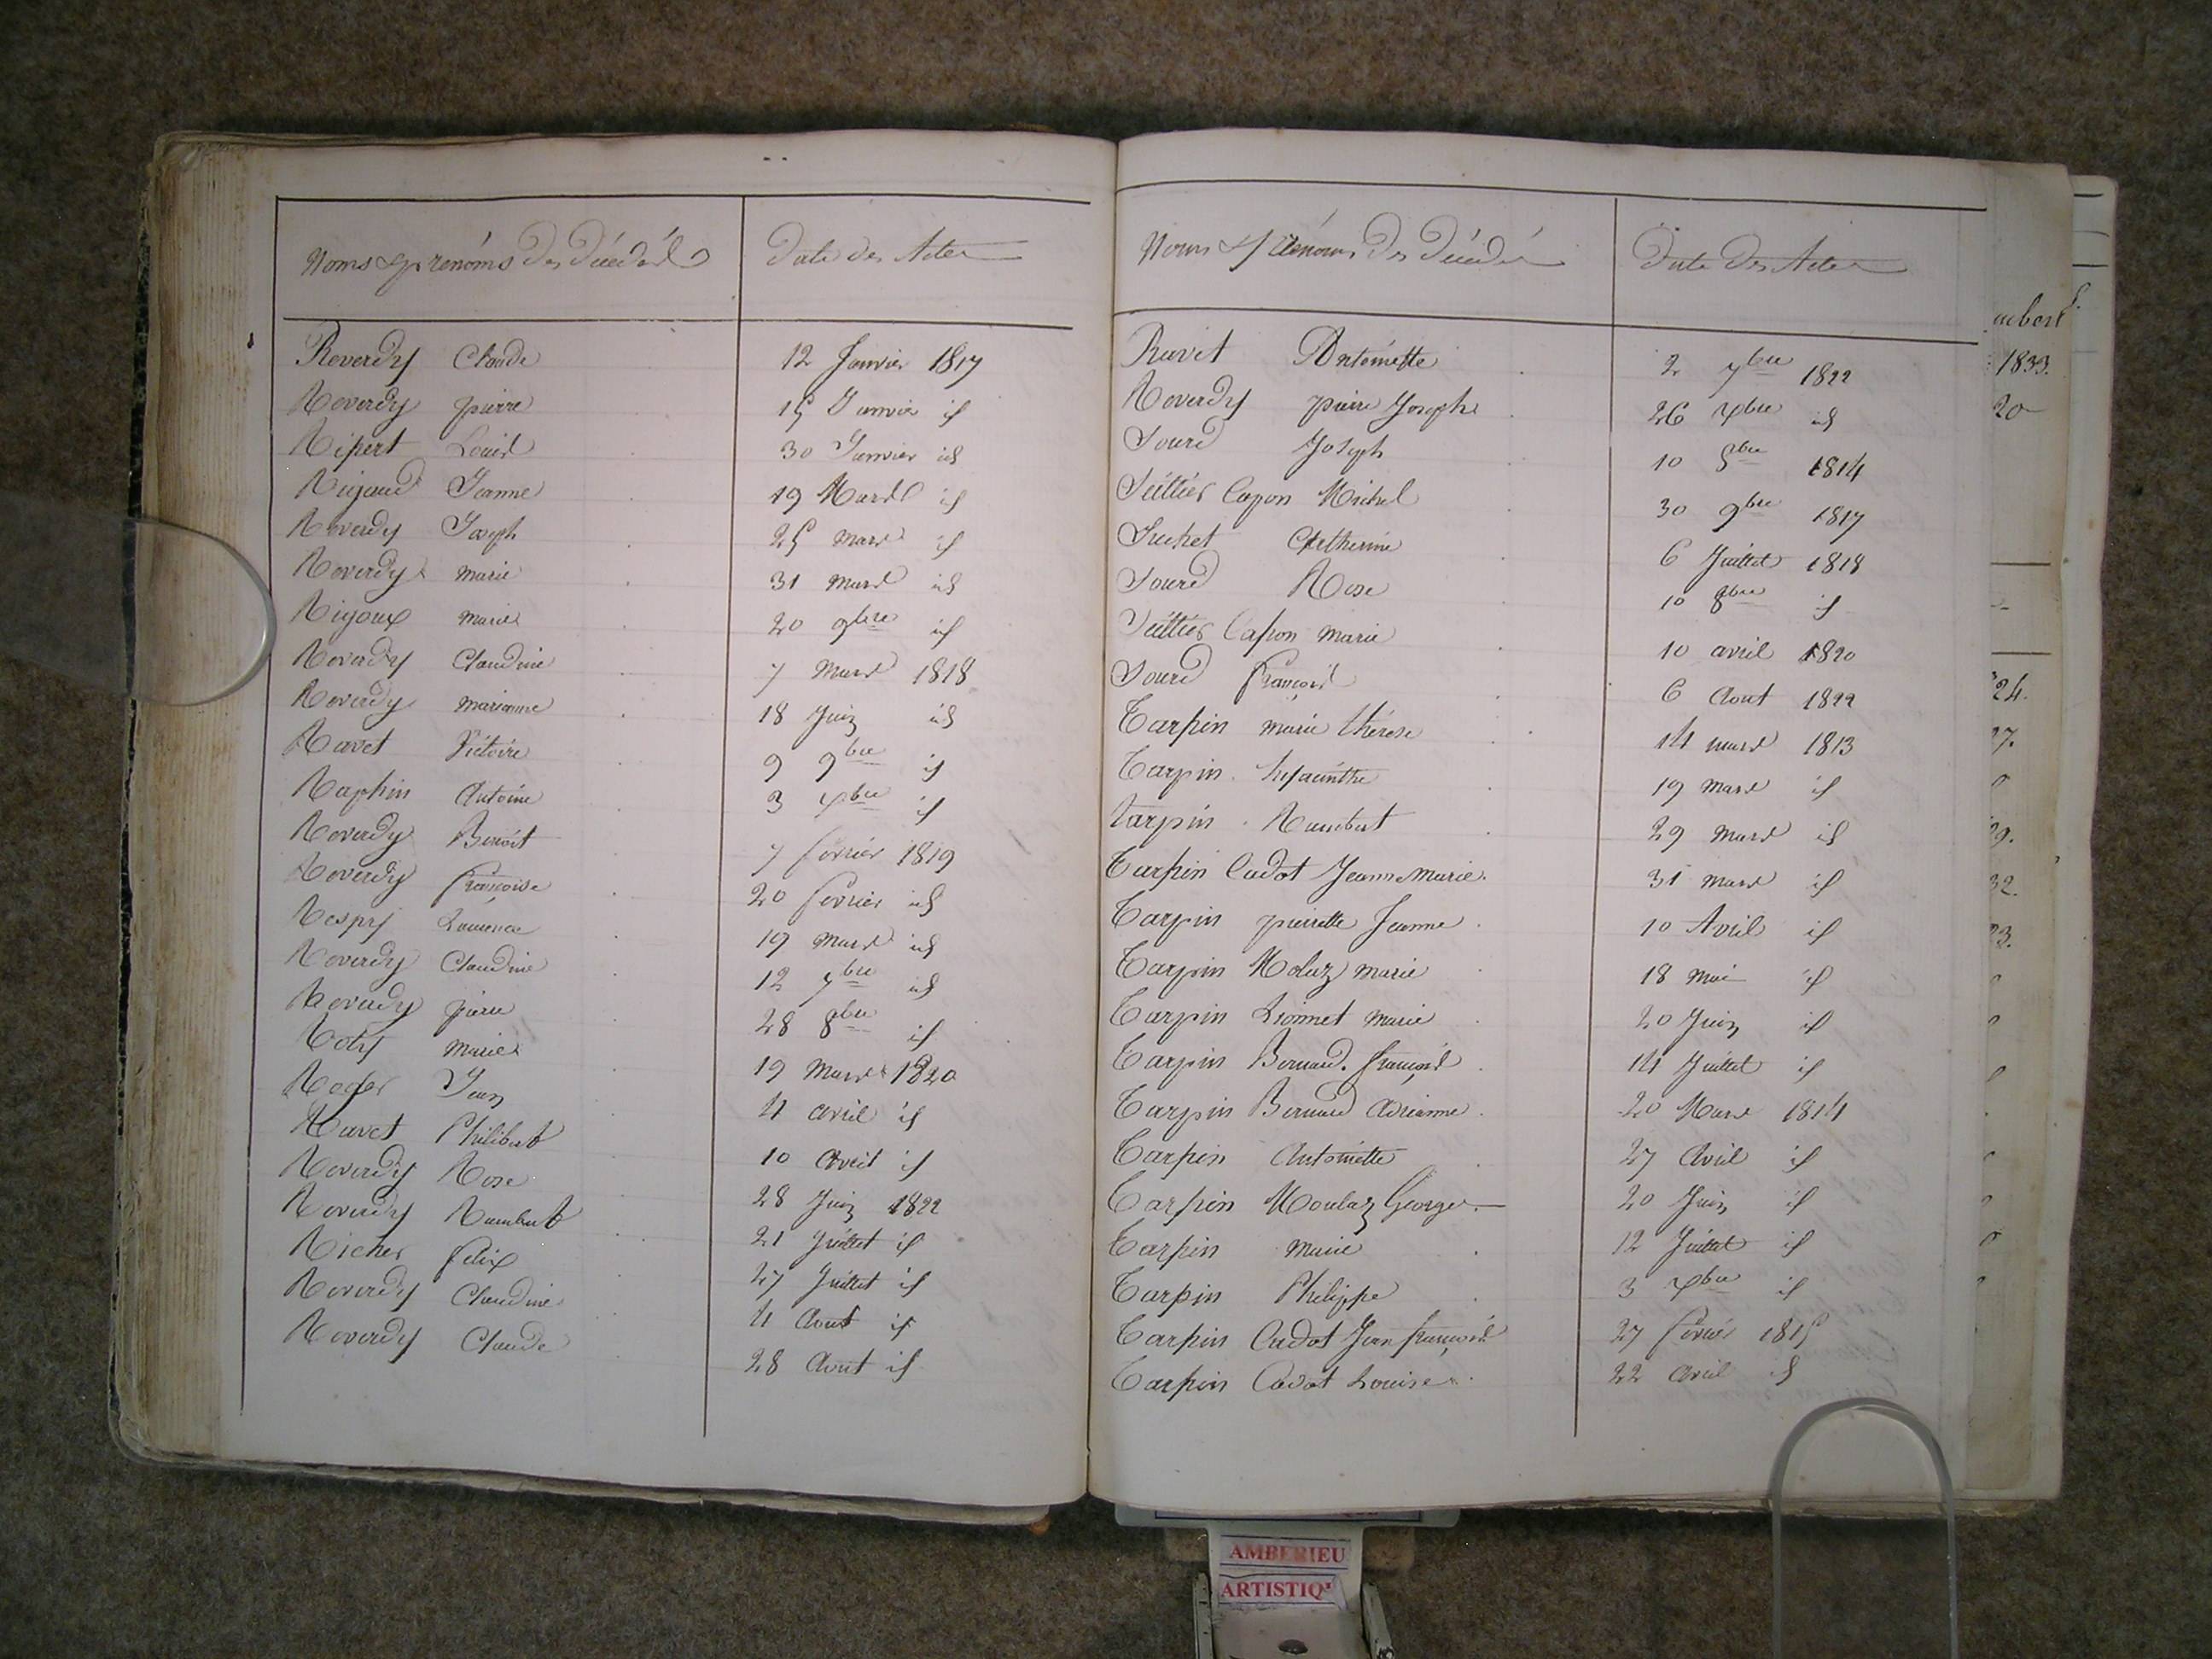 Noms & prénoms Des Décédés Date des Actes
Reverdy Claude 12 Janvier 1817
Reverdy pierre 15 Janvier id
Ripert Louis 30 Janvier id
Rigaud Jeanne 19 Mars id
Reverdy Joseph 25 mars id
Reverdy marie 31 mars id
Rigoux marie 20 9bre id
Reverdy Claudine 7 Mars 1818
Reverdy marianne 18 Juin id
Ravet Victoire 9 9bre id
Raphin Antoine 3 xbre id
Reverdy Benoit 7 février 1819
Reverdy françoise 20 février id
Laurence 19 mars id
Reverdy Claudine 12 7bre id
Reverdy pierre 28 8bre id
marie 19 Mars 1820
Roger Jean 4 avril id
Ravet Philibert 10 Avril id
Reverdy Rose 28 Juin 1822
Reverdy Rambert 21 Juillet id
Richer felix 27 Juillet id
Reverdy Claudine 4 Aout id
Reverdy Claude 28 Aout id
Noms & prénoms Des Décédés Date Des Actes
Ravet Antoinette 2 7bre 1822
Reverdy pierre Joseph 26 xbre id
Sourd Joseph 10 8bre 1814
Seillier Capon Michel 30 9bre 1817
Suchet Catherine 6 Juillet 1818
Sourd Rose 10 8bre id
Seillier Capon marie 10 avril 1820
Sourd françois 6 Aout 1822
Tarpin marie thérese 14 mars 1813
Tarpin hyacinthe 19 mars id
Tarpin Rambert 29 mars id
Tarpin Cadot Jeanne Marie. 31 mars id
Tarpin pierrette Jeanne 10 Avril id
Tarpin Molaz marie 18 mai id
Tarpin Lionnet marie 20 Juin id
Tarpin Bernard. françois 14 Juillet id
Tarpin Bernard Adrianne 20 Mars 1814
Tarpin Antoinette 27 Avril id
Tarpin Moulaz George 20 Juin id
Tarpin marie 12 Juillet id
Tarpin Philippe 3 xbre id
Tarpin Cadot Jean françois 27 février 1815
Tarpin Cadot Louise 22 avril id
1833.
20
24.
27.
29.
32.
33.
AMBERIEU
ARTISTIQ